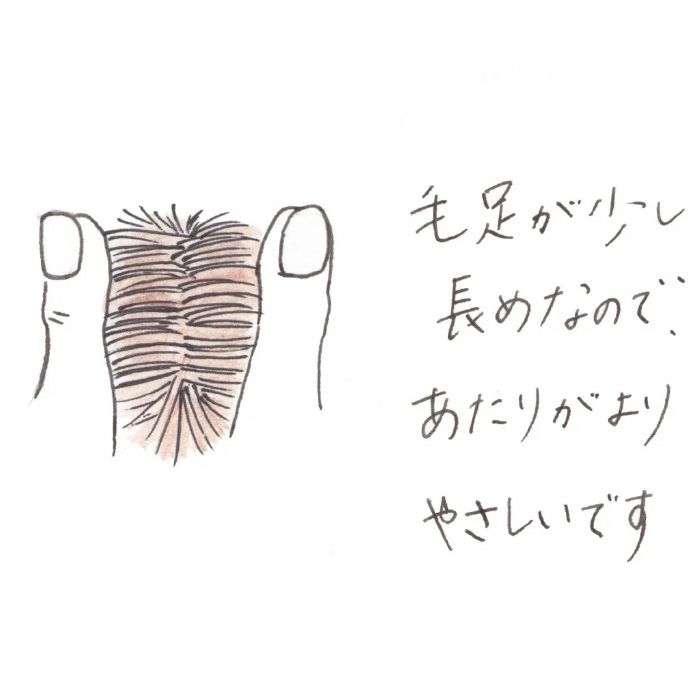 毛足が少し
長めなので、
あたりがより
やさしいです